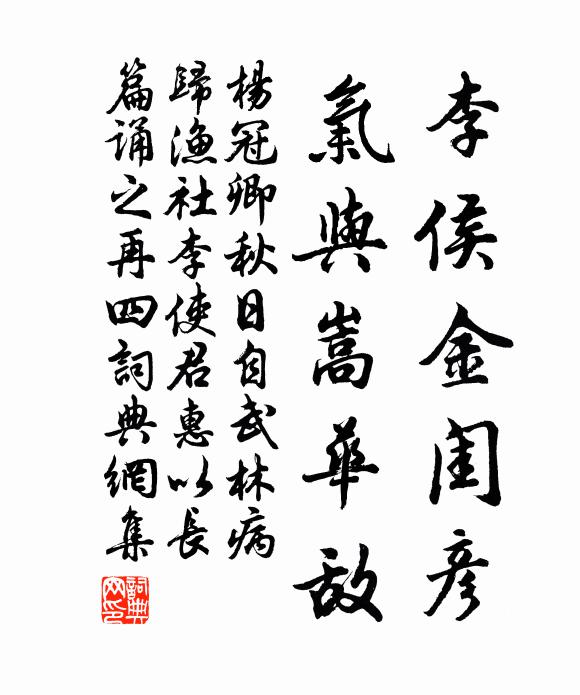 李侯金閨彥
氣與嵩華敵
楊冠卿秋日自武林病
歸漁社李使君惠以長
篇誦之再四詞典網集
詞典網印